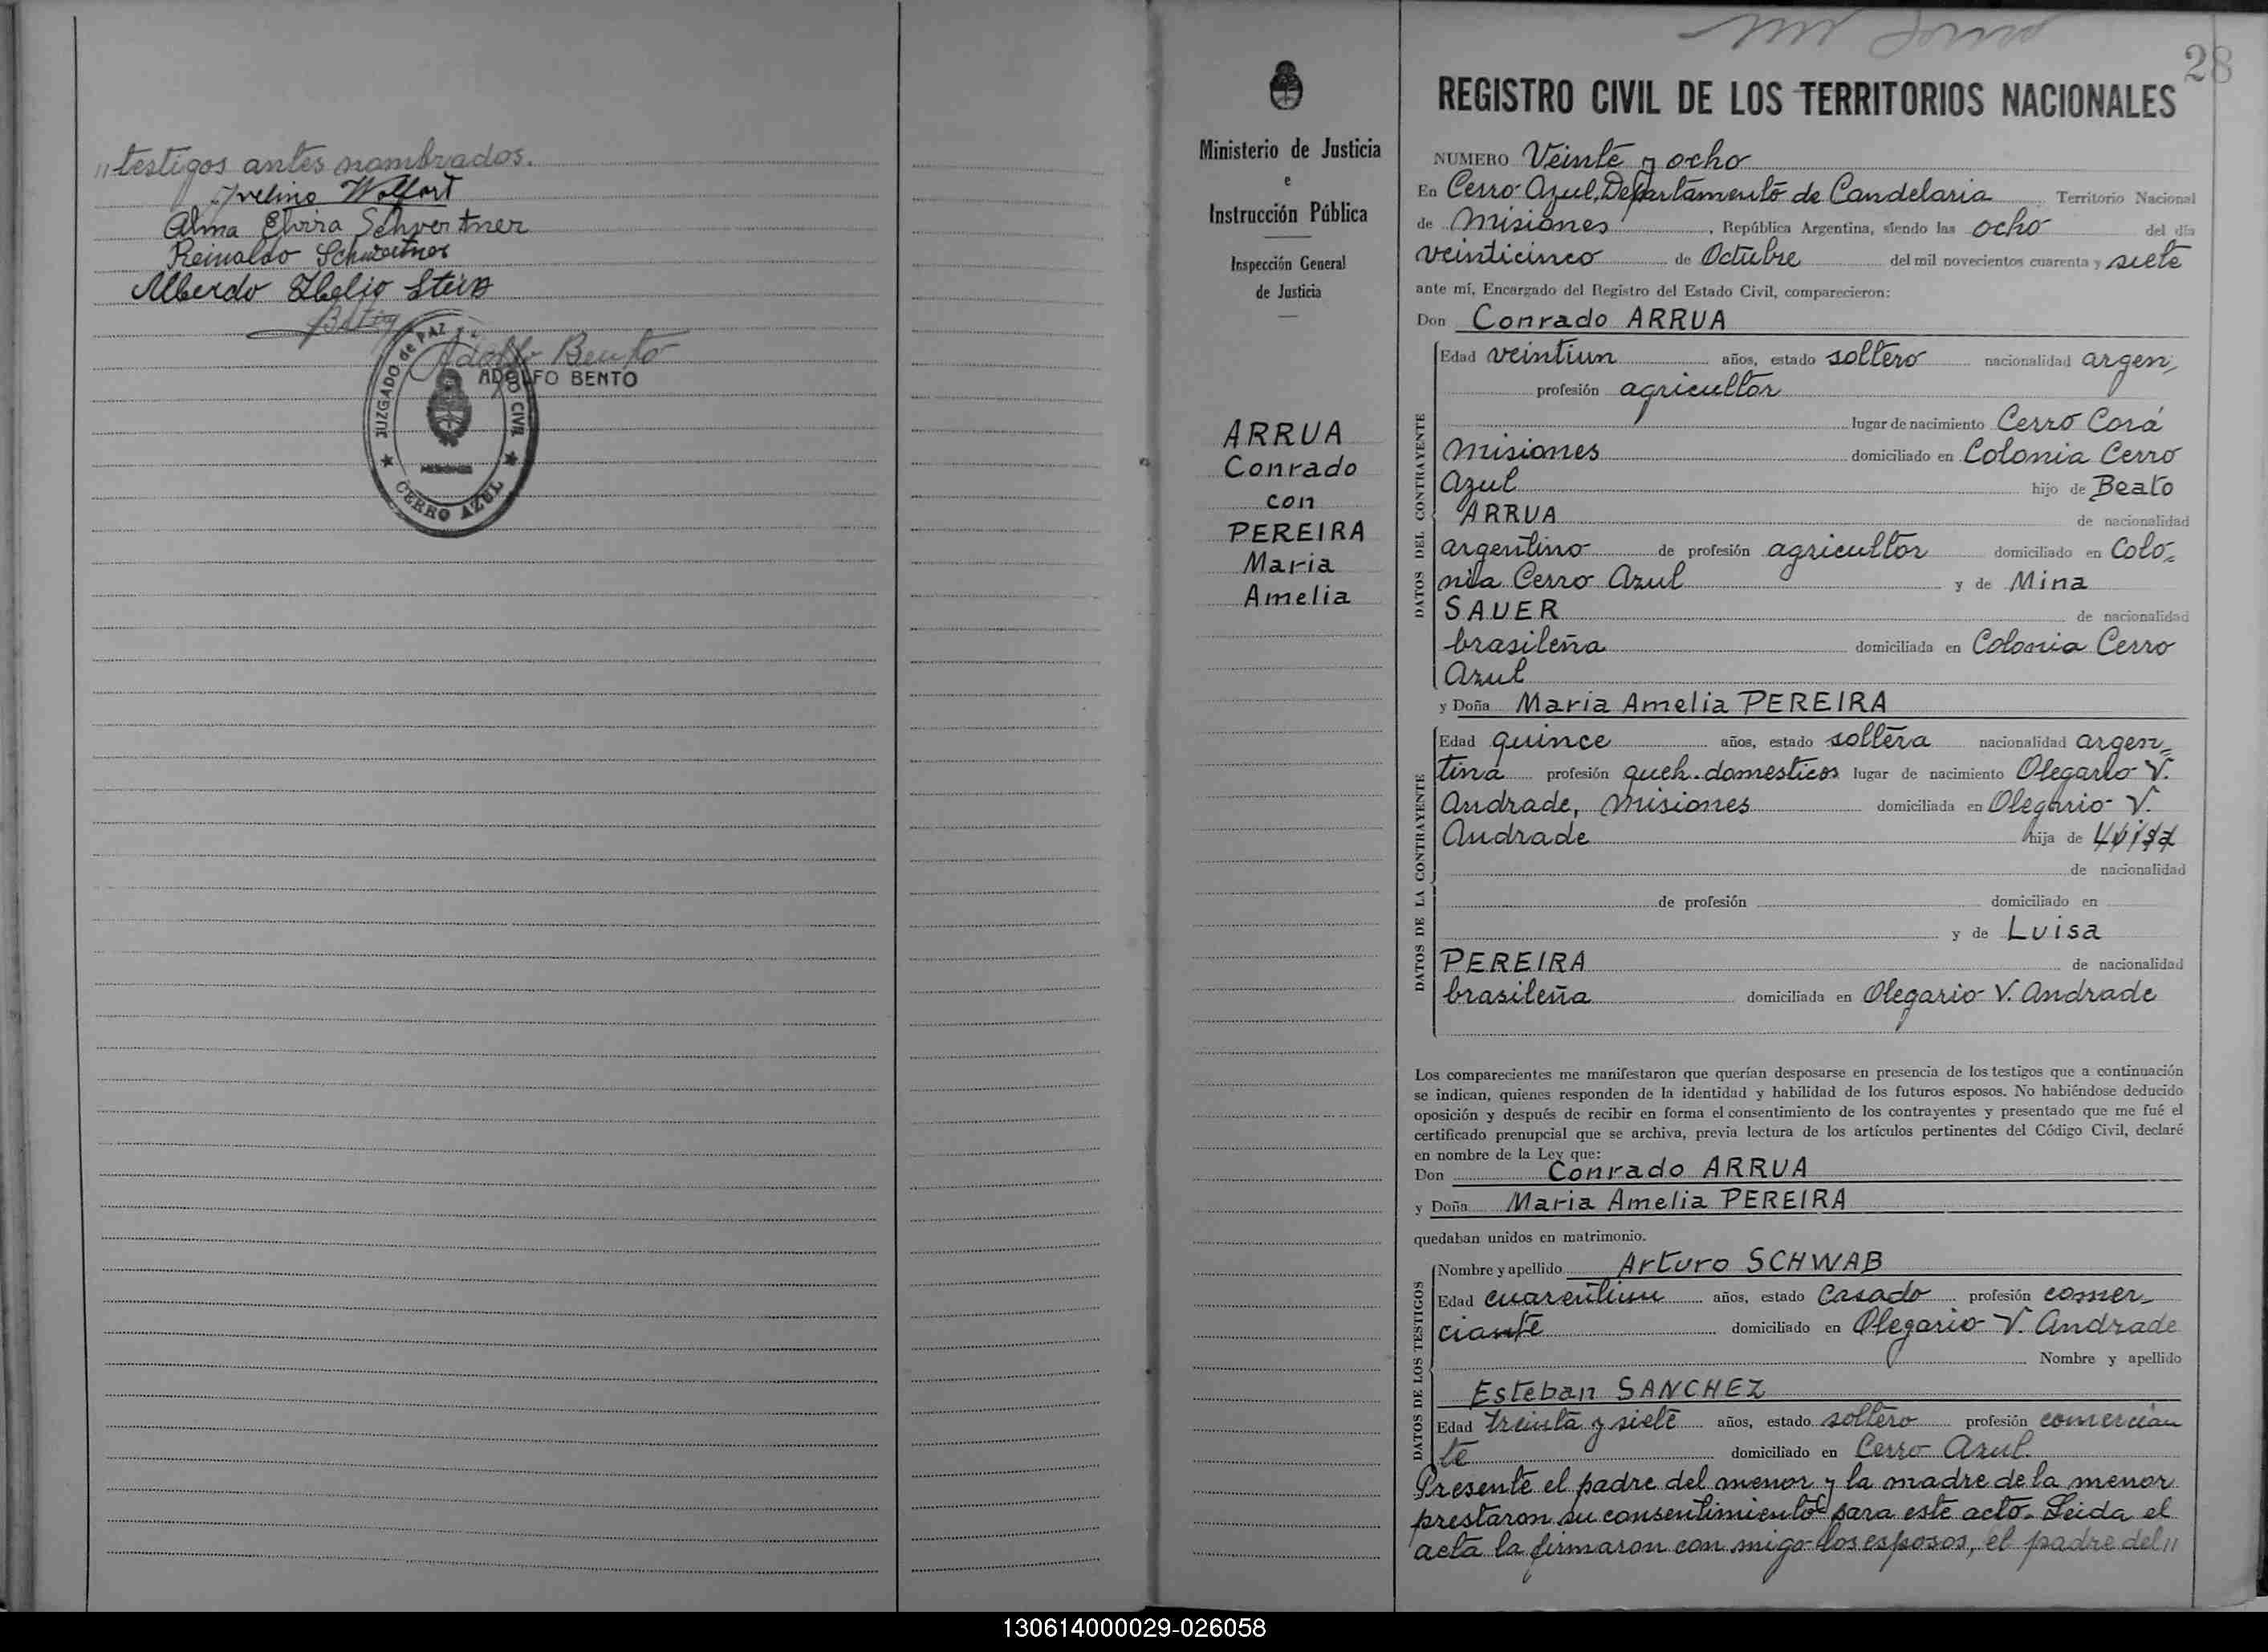 "testigos antes nombrados.
Avelino Wolfart
Alma Elvira Schwertner
Reinaldo Schwertner
Alberdo Ehelio Stein
Adolfo Bento
ADOLFO BENTO
JUZGADO de PAZ
CIVIL
CERRO AZUL
Ministerio de Justicia
e
Instrucción Pública
Inspección General
de Justicia
ARRUA
Conrado
con
PEREIRA
Maria
Amelia
28
REGISTRO CIVIL DE LOS TERRITORIOS NACIONALES
NUMERO Veinte y ocho
En Cerro Azul, Departamento de Candelaria Territorio Nacional
de Misiones, República Argentina, siendo las ocho del día
veinticinco de Octubre del mil novecientos cuarenta y siete
ante mí, Encargado del Registro del Estado Civil, comparecieron:
Don Conrado ARRUA
DATOS DEL CONTRAYENTE
Edad veintiun años, estado soltero nacionalidad argen,
profesión agricultor
lugar de nacimiento Cerro Corá
Misiones domiciliado en Colonia Cerro
Azul hijo de Beato
ARRUA de nacionalidad
argentino de profesión agricultor domiciliado en Colo=
nia Cerro Azul y de Mina
SAUER de nacionalidad
brasileña domiciliada en Colonia Cerro
Azul
y Doña Maria Amelia PEREIRA
DATOS DE LA CONTRAYENTE
Edad quince años, estado soltera nacionalidad argen=
tina profesión queh. domesticos lugar de nacimiento Olegario V.
Andrade, Misiones domiciliada en Olegario V.
Andrade hija de Luisa
de nacionalidad
de profesión domiciliado en
y de Luisa
PEREIRA de nacionalidad
brasileña domiciliada en Olegario V. Andrade
Los comparecientes me manifestaron que querían desposarse en presencia de los testigos que a continuación
se indican, quienes responden de la identidad y habilidad de los futuros esposos. No habiéndose deducido
oposición y después de recibir en forma el consentimiento de los contrayentes y presentado que me fué el
certificado prenupcial que se archiva, previa lectura de los artículos pertinentes del Código Civil, declaré
en nombre de la Ley que:
Don Conrado ARRUA
y Doña Maria Amelia PEREIRA
quedaban unidos en matrimonio.
DATOS DE LOS TESTIGOS
Nombre y apellido Arturo SCHWAB
Edad cuarentiun años, estado Casado profesión comer-
ciante domiciliado en Olegario V. Andrade
Nombre y apellido
Esteban SANCHEZ
Edad treinta y siete años, estado soltero profesión comercian
te domiciliado en Cerro Azul.
Presente el padre del menor y la madre de la menor
prestaron su consentimiento para este acto. Leida el
acta la firmaron con migo los esposos, el padre del "
130614000029-026058